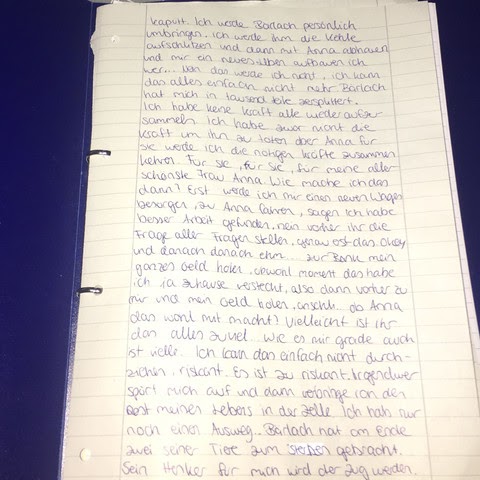 kaputt. Ich werde Barlach persönlich
umbringen. Ich werde ihm die Kehle
aufschlitzen und dann mit Anna abhauen
und mir ein neues Leben aufbauen ich
wer... Nein das werde ich nicht, ich kann
das alles einfach nicht mehr Barlach
hat mich in tausend teile zersplittert.
Ich habe keine kraft alle wieder aufzu-
sammeln ich habe zwar nicht die
kraft um ihn zu töten aber Anna für
sie werde ich die nötigen kräfte zusammen
kehren. Für sie, für sie, für meine aller-
schönste Frau Anna. Wie mache ich das
dann? Erst werde ich mir einen neuen Wagen
besorgen, zu Anna fahren, sagen Ich habe
besser Arbeit gefunden, nein vorher ihr die
Frage aller Fragen stellen, genau ost das. Okey
und danach danach ehm... zur Bank mein
ganzes Geld holen, obwohl moment das habe
ich ja zuhause versteckt, also dann vorher zu
mir und mein Geld holen, anschli. ob Anna
das wohl mit macht? Vielleicht ist ihr
das alles zuviel. Wie es mir grade auch
ist vielle. Ich kann das einfach nicht durch-
ziehen, riskant. Es ist zu riskant. Irgendwer
spört mich auf und dann verbringe ich den
Rest meines Lebens in der zelle Ich hab nur
noch einen Ausweg... Barlach hat am Ende
zwei seiner Tiere zum sterben gebracht.
Sein Henker für mich wird der Zug werden.